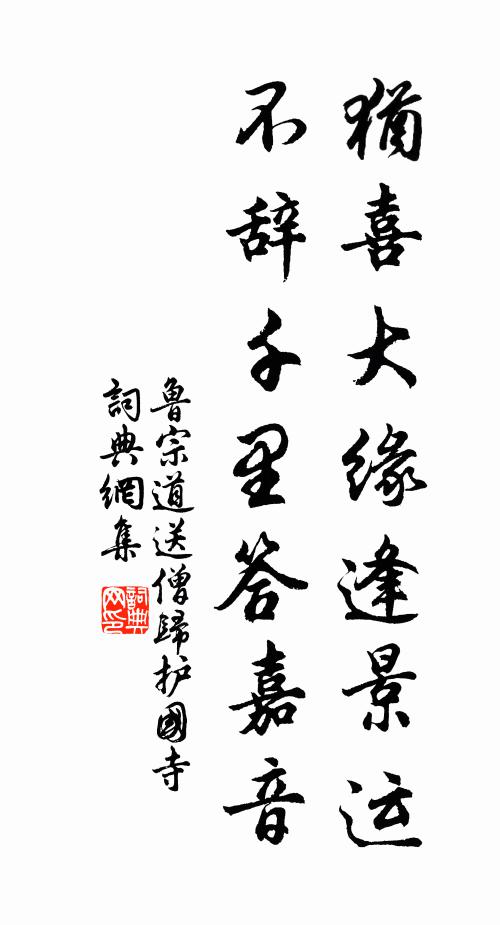 猶喜大缘逢景运
不辞千里答嘉音
魯宗道送僧歸护國寺
詞典網集
詞典网印